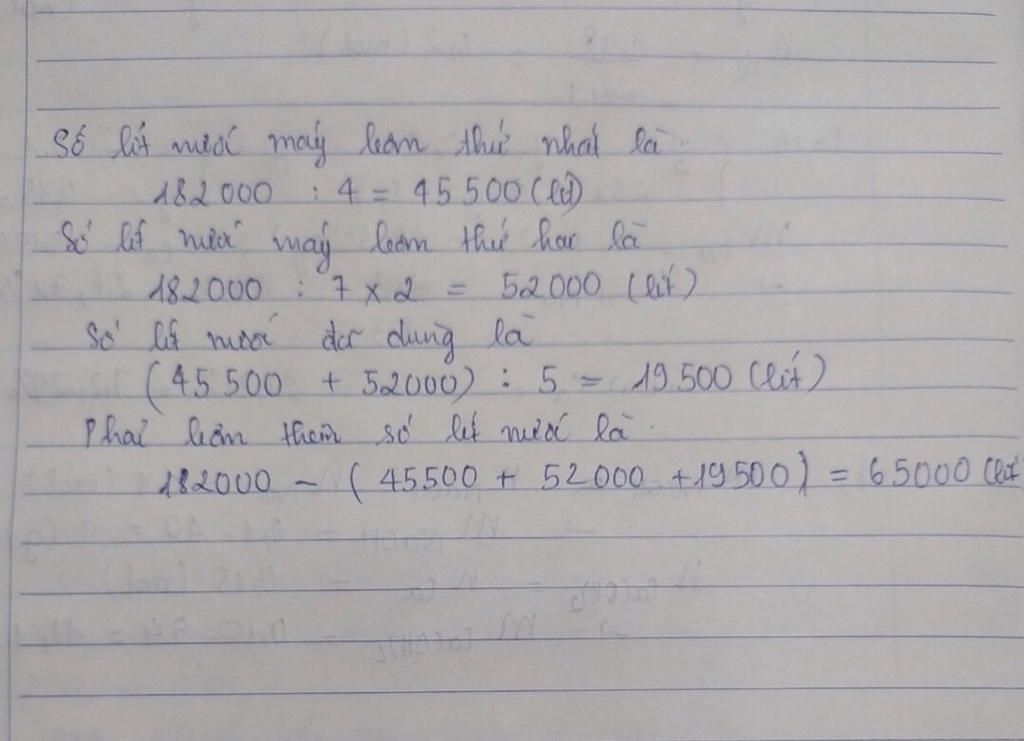 Số lít nước máy bơm thứ nhất là
182000 : 4 = 45 500 (lít)
Số lít nước máy bơm thứ hai là
182000 : 7 x 2 = 52000 (lít)
Số lít nước đã dùng là
(45 500 + 52000) : 5 = 19 500 (lít)
Phải bơm thêm số lít nước là
182000 - (45500 + 52000 + 19500) = 65000 (lít